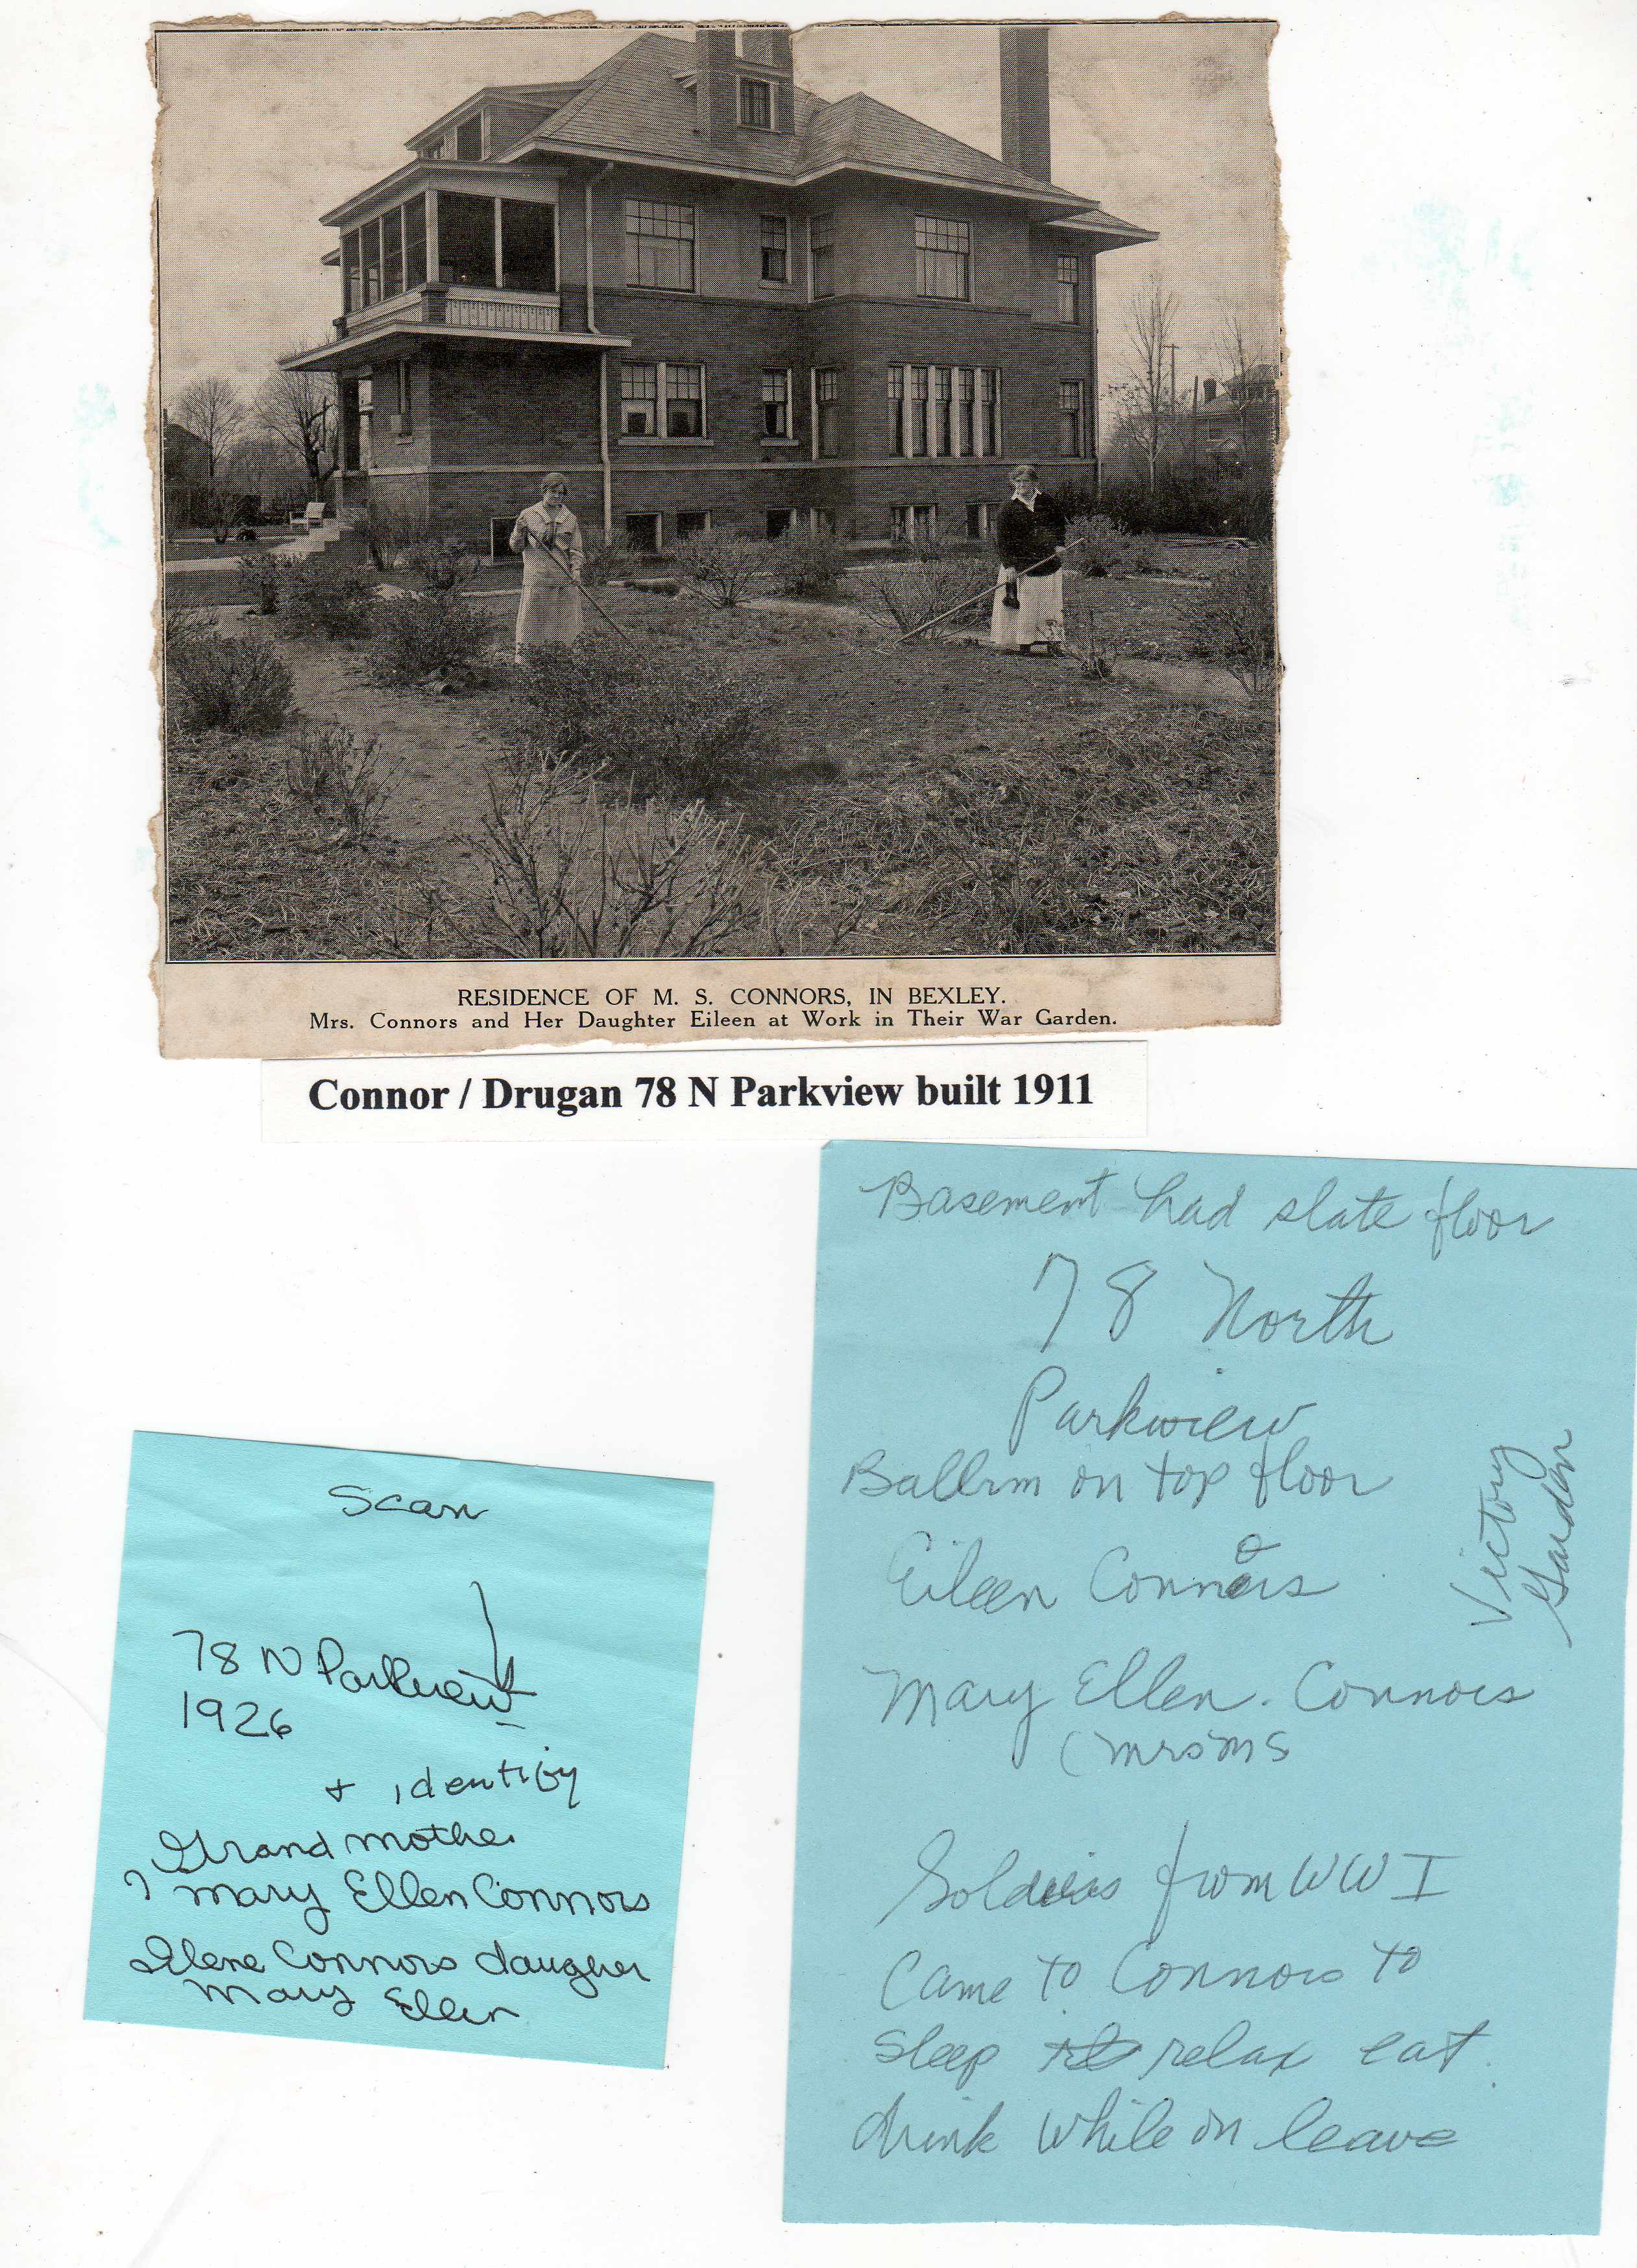 RESIDENCE OF M. S. CONNORS, IN BEXLEY.
Mrs. Connors and Her Daughter Eileen at Work in Their War Garden.
Connor / Drugan 78 N Parkview built 1911
Basement had slate floor
78 North
Parkview
Ballrm on top floor
Eileen Connors
Mary Ellen. Connors
(Mrs MS
Victory
Garden
Soldiers from WW I
Came to Connors to
sleep relax eat
drink while on leave
Scan
78 N Parkview
1926
+ identify
Grand mother
? Mary Ellen Connors
Ilene Connors daugher
Mary Ellen